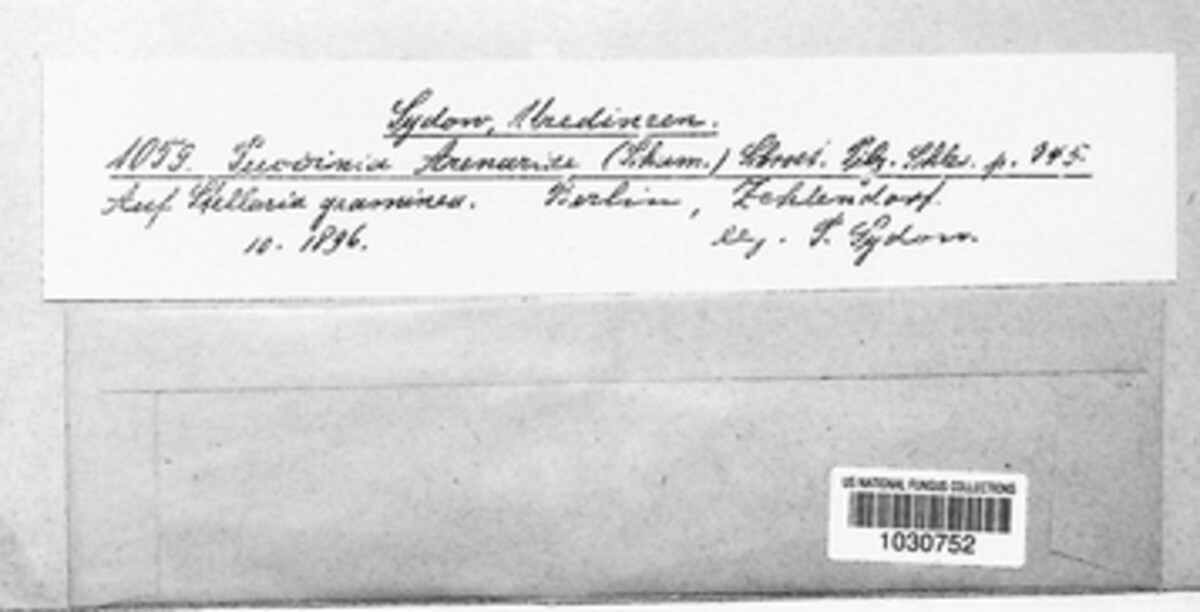 Sydow, Uredineen.
1059. Puccinia Arenariae (Schum.) Schroet. Pilz. Schles. p. 345.
Auf Stellaria graminea. Berlin, Zehlendorf.
10. 1896. leg. P. Sydow.
US NATIONAL FUNGUS COLLECTIONS
1030752